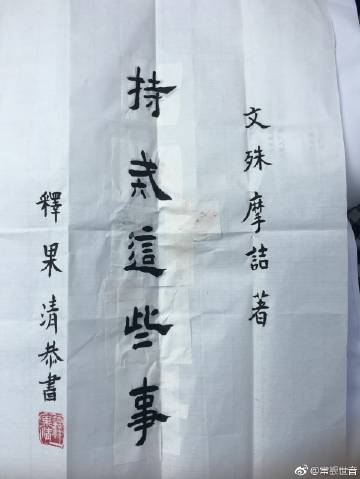 文殊摩詰著
持戒這些事
釋果清恭書
@常观世音